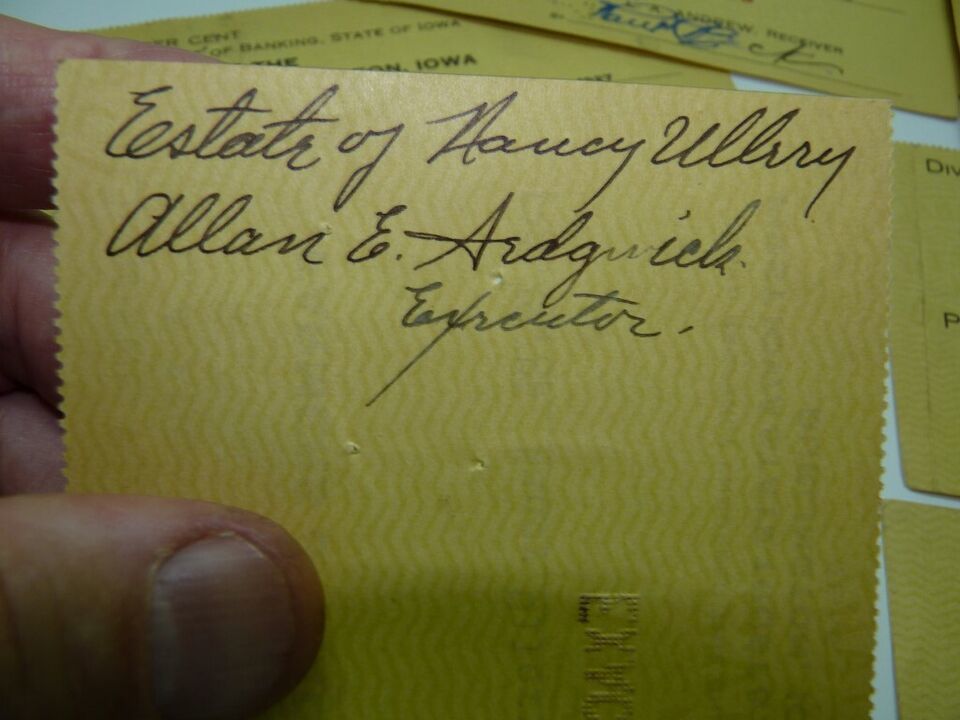 ER CENT
OF BANKING, STATE OF IOWA
THE
TON, IOWA
ANDREW, RECEIVER
BY
Estate of Nancy Ullery
Allan E. Ardgwick
Executor.
Div
P